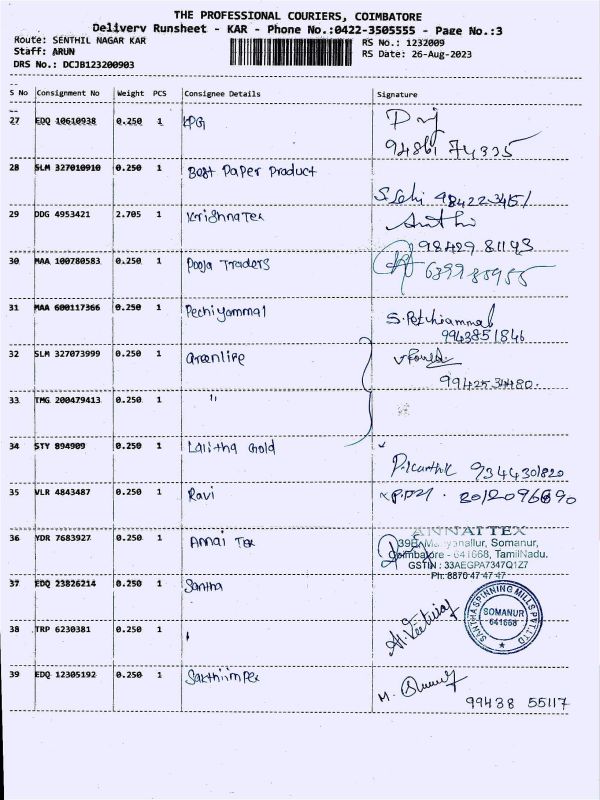 THE PROFESSIONAL COURIERS, COIMBATORE
Delivery Runsheet - KAR - Phone No.:0422-3505555 - Page No.:3
Route: SENTHIL NAGAR KAR
RS No.: 1232009
Staff: ARUN
RS Date: 26-Aug-2023
DRS No.: DCJB123200903
S No Consignment No Weight PCS Consignee Details Signature
27 EDQ 10610938 0.250 1 LPG
94861 74335
28 SLM 327010910 0.250 1 Best Paper Product
29 DDG 4953421 2.705 1 KrishnaTex
98429 81193
30 MAA 100780583 0.250 1 Pooja Traders
31 MAA 600117366 0.250 1 Pechiyammal
S.Petchiammal
9943851846
32 SLM 327073999 0.250 1 Greenlife
9942534480.
33 TMG 200479413 0.250 1 "
34 STY 894909 0.250 1 Lalitha Gold
P.Karthik 9344301820
35 VLR 4843487 0.250 1 Ravi
36 YDR 7683927 0.250 1 Annai Tex
ANNAI TEX
Somanur,
Coimbatore - 641668, TamilNadu.
GSTIN : 33AEGPA7347Q1Z7
Ph: 8870 47 47 47
37 EDQ 23826214 0.250 1 Santha
SANTHA SPINNING MILLS PVT. LTD
SOMANUR
641668
38 TRP 6230381 0.250 1
39 EDQ 12305192 0.250 1 Sakthiimpex
99438 55117